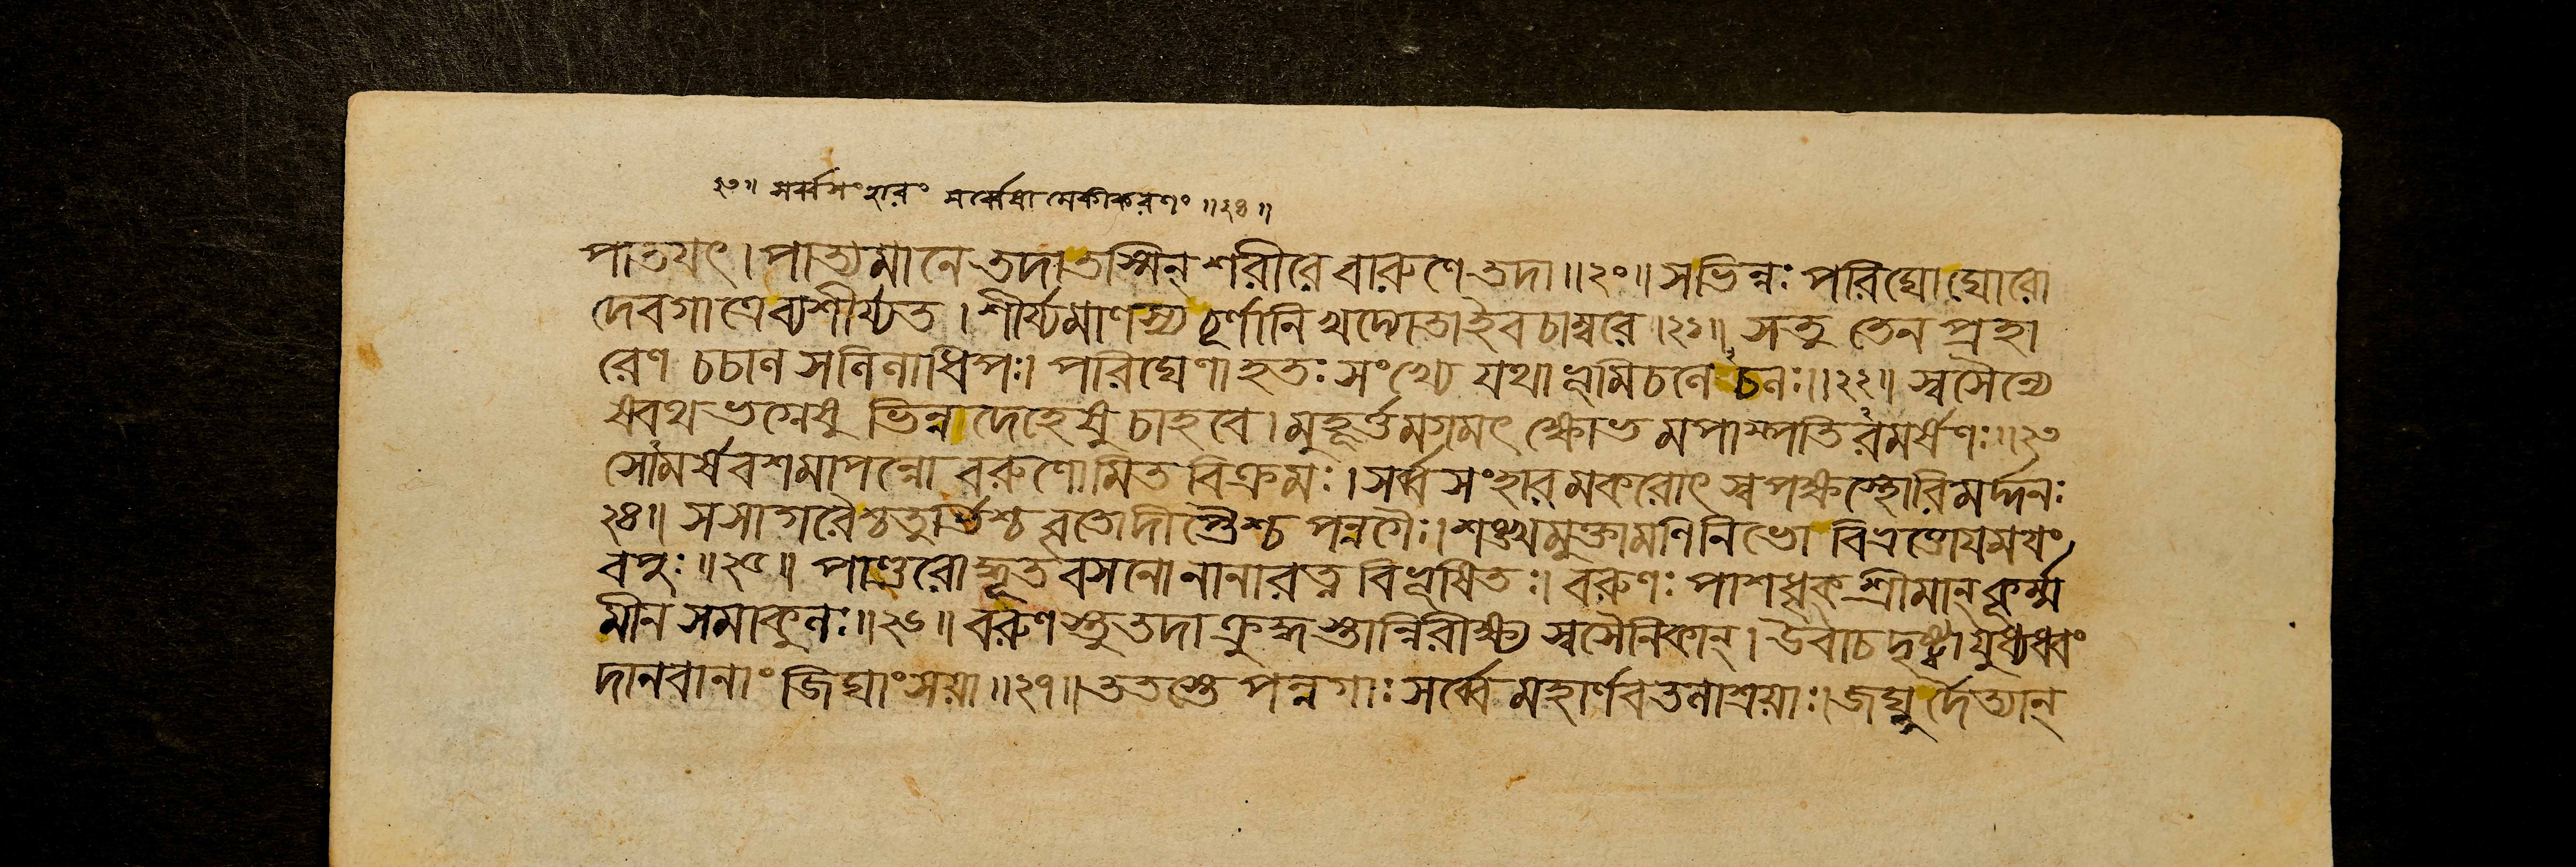 ২৩॥ সর্ব্বসংহারং সর্ব্বেষামেকীকরণং ॥২৪॥
পাতযৎ। পাত্যমানে তদা তস্মিন্ শরীরে বারুণে তদা॥২০॥ সভিন্নঃ পরিঘো ঘোরো
দেবগাত্রে ব্যশীর্য্যত। শীর্য্যমাণস্য চূর্ণানি খদ্যোতা ইব চাম্বরে।২১॥ সতু তেন প্রহা
রেণ চচাল সলিলাধিপঃ। পরিঘেণাহতঃ সংখ্যে যথা ভূমিচলে চলঃ॥২২॥ স্বসৈন্যে
ষ্বথ ভগ্নেষু ভিন্নদেহেষু চাহবে। মুহূর্ত্তমগমৎ ক্ষোভমপাম্পতিরমর্ষণঃ॥২৩
সোমর্ষবশমাপন্নো বরুণোমিতবিক্রমঃ। সর্ব্বসংহারমকরোৎ স্বপক্ষস্থোরিমর্দ্দনঃ
২৪॥ স সাগরৈশ্চতুর্ভিশ্চ বৃতো দীপ্তৈশ্চ পন্নগৈঃ। শঙ্খমুক্তামণিনিভো বিভ্রত্তোযমযং
বপুঃ॥২৫॥ পাণ্ডুরোদ্ধূতবসনো নানারত্নবিভূষিতঃ। বরুণঃ পাশধৃক্ শ্রীমান্ কূর্ম্ম
মীনসমাকুলঃ॥২৬॥ বরুণস্তু তদা ক্রুদ্ধস্তান্নিরীক্ষ্য স্বসৈনিকান্। উবাচ দৃষ্ট্বা যুধ্যধ্বং
দানবানাং জিঘাংসয়া॥২৭॥ ততস্তে পন্নগাঃ সর্ব্বে মহার্ণবতলাশ্রয়াঃ। জঘ্নুর্দৈত্যান্